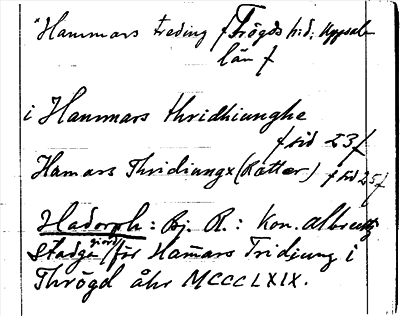 "Hammars treding f Trögds h:d: Uppsala
län f
i Hammars thridhiunghe
f sid 23 f
Hamars Thridiungx (Rätter) f sid 25 f
Hadorph: Bj. R.: Kon. Albrectz
Stadge giord för Ham̄ars Tridjung i
Thrögd åhr MCCCLXIX.